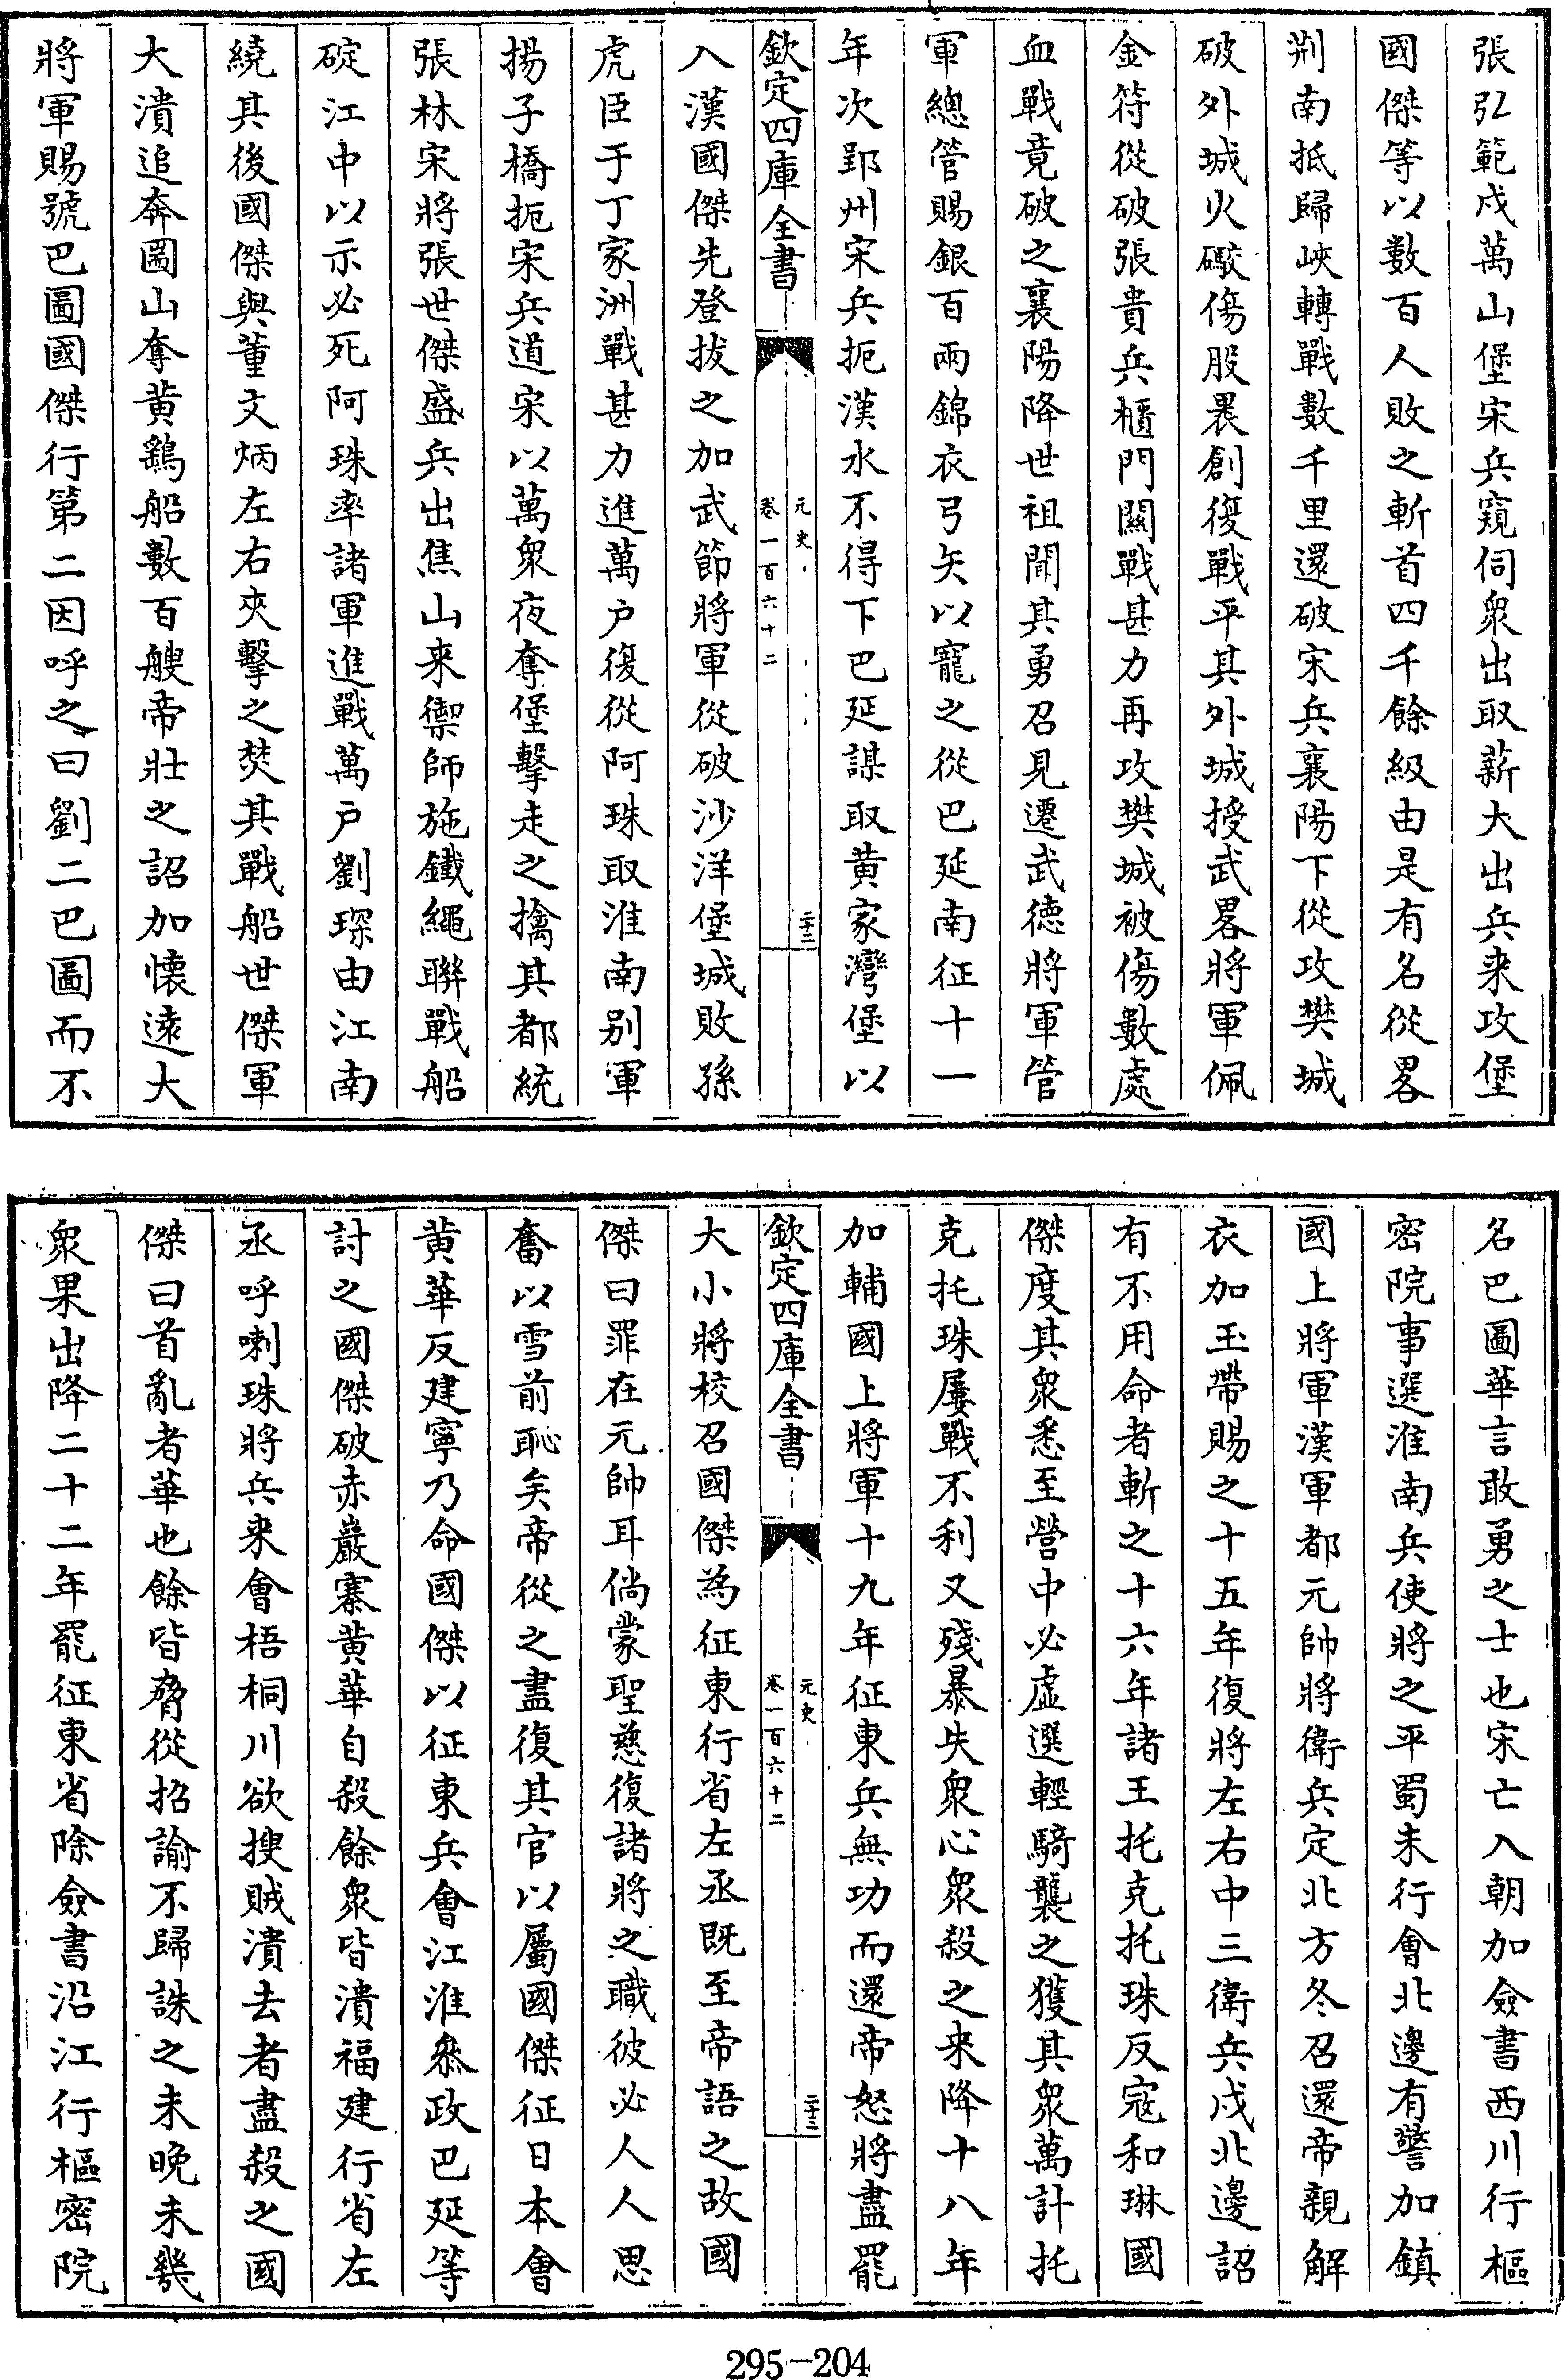 張弘範戍萬山堡宋兵窺伺衆出取薪大出兵来攻堡
國傑等以數百人敗之斬首四千餘級由是有名從畧
荆南抵歸峽轉戰數千里還破宋兵襄陽下從攻樊城
破外城火礮傷股裹創復戰平其外城授武畧將軍佩
金符從破張貴兵櫃門關戰甚力再攻樊城被傷數處
血戰竟破之襄陽降世祖聞其勇召見遷武德將軍管
軍總管賜銀百兩錦衣弓矢以寵之從巴延南征十一
年次郢州宋兵扼漢水不得下巴延謀取黄家灣堡以
欽定四庫全書
元史
卷一百六十二
二十二
入漢國傑先登拔之加武節將軍從破沙洋堡城敗孫
虎臣于丁家洲戰甚力進萬户復從阿珠取淮南别軍
揚子橋扼宋兵道宋以萬衆夜奪堡擊走之擒其都統
張林宋將張世傑盛兵出焦山来禦師施鐵繩聯戰船
碇江中以示必死阿珠率諸軍進戰萬户劉琛由江南
繞其後國傑與董文炳左右夾擊之焚其戰船世傑軍
大潰追奔圌山奪黄鷂船數百艘帝壯之詔加懷遠大
將軍賜號巴圖國傑行第二因呼之曰劉二巴圖而不
名巴圖華言敢勇之士也宋亡入朝加僉書西川行樞
密院事選淮南兵使將之平蜀未行會北邊有警加鎮
國上將軍漢軍都元帥將衛兵定北方冬召還帝親解
衣加玉帶賜之十五年復將左右中三衛兵戍北邊詔
有不用命者斬之十六年諸王托克托珠反寇和琳國
傑度其衆悉至營中必虛選輕騎襲之獲其衆萬計托
克托珠屢戰不利又殘暴失衆心衆殺之来降十八年
加輔國上將軍十九年征東兵無功而還帝怒將盡罷
欽定四庫全書
元史
卷一百六十二
二十三
大小將校召國傑為征東行省左丞既至帝語之故國
傑曰罪在元帥耳倘蒙聖慈復諸將之職彼必人人思
奮以雪前恥矣帝從之盡復其官以屬國傑征日本會
黄華反建寧乃命國傑以征東兵會江淮叅政巴延等
討之國傑破赤巖寨黄華自殺餘衆皆潰福建行省左
丞呼喇珠將兵来會梧桐川欲搜賊潰去者盡殺之國
傑曰首亂者華也餘皆脅從招諭不歸誅之未晚未幾
衆果出降二十二年罷征東省除僉書沿江行樞密院
295-204